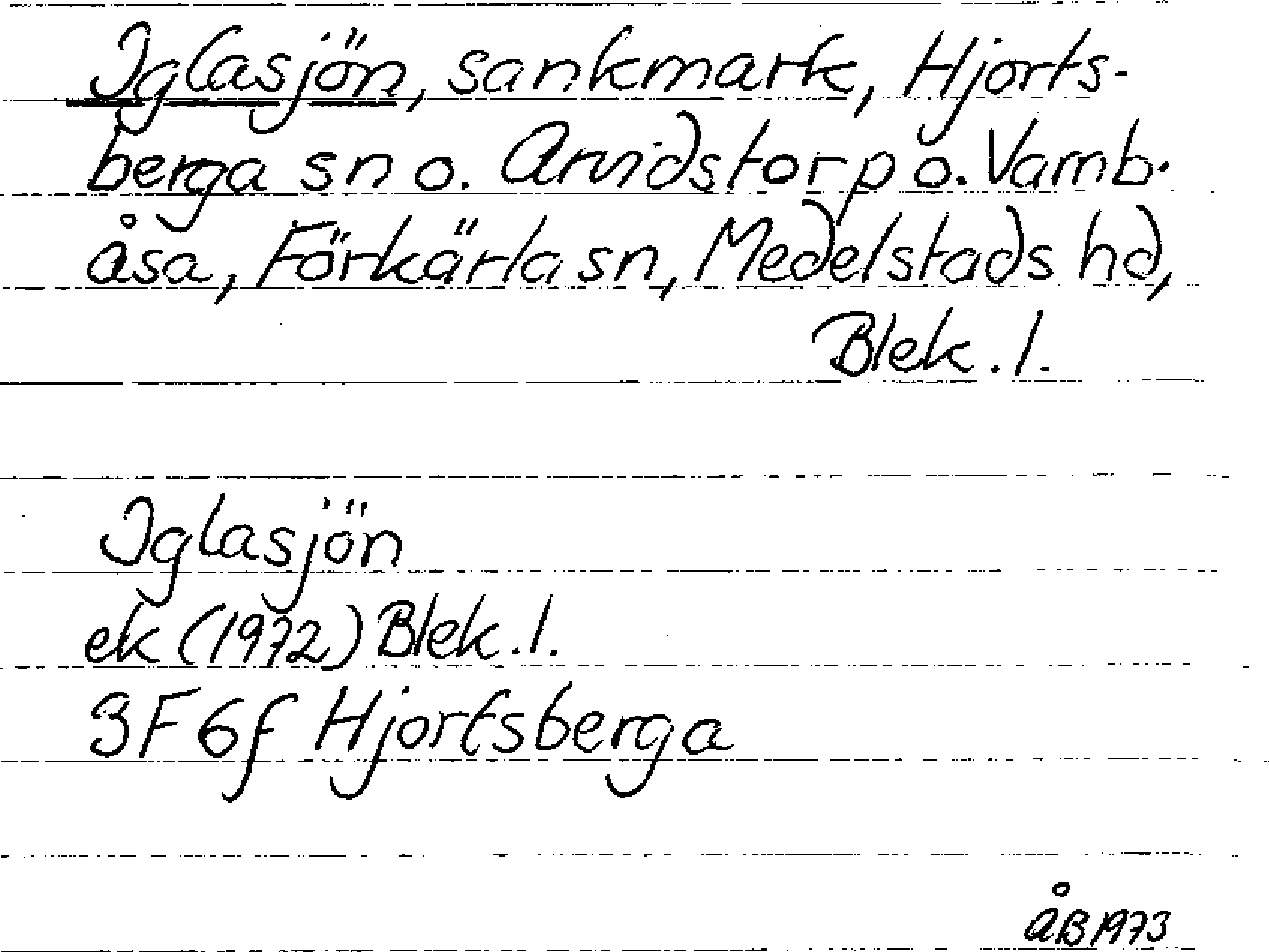 Iglasjön, sankmark, Hjorts-
berga sn o. Arvidstorp o. Vamb-
åsa, Förkärla sn, Medelstads hd,
Blek. l.
Iglasjön
ek (1972) Blek. l.
3F 6f Hjortsberga
ÅB 1973